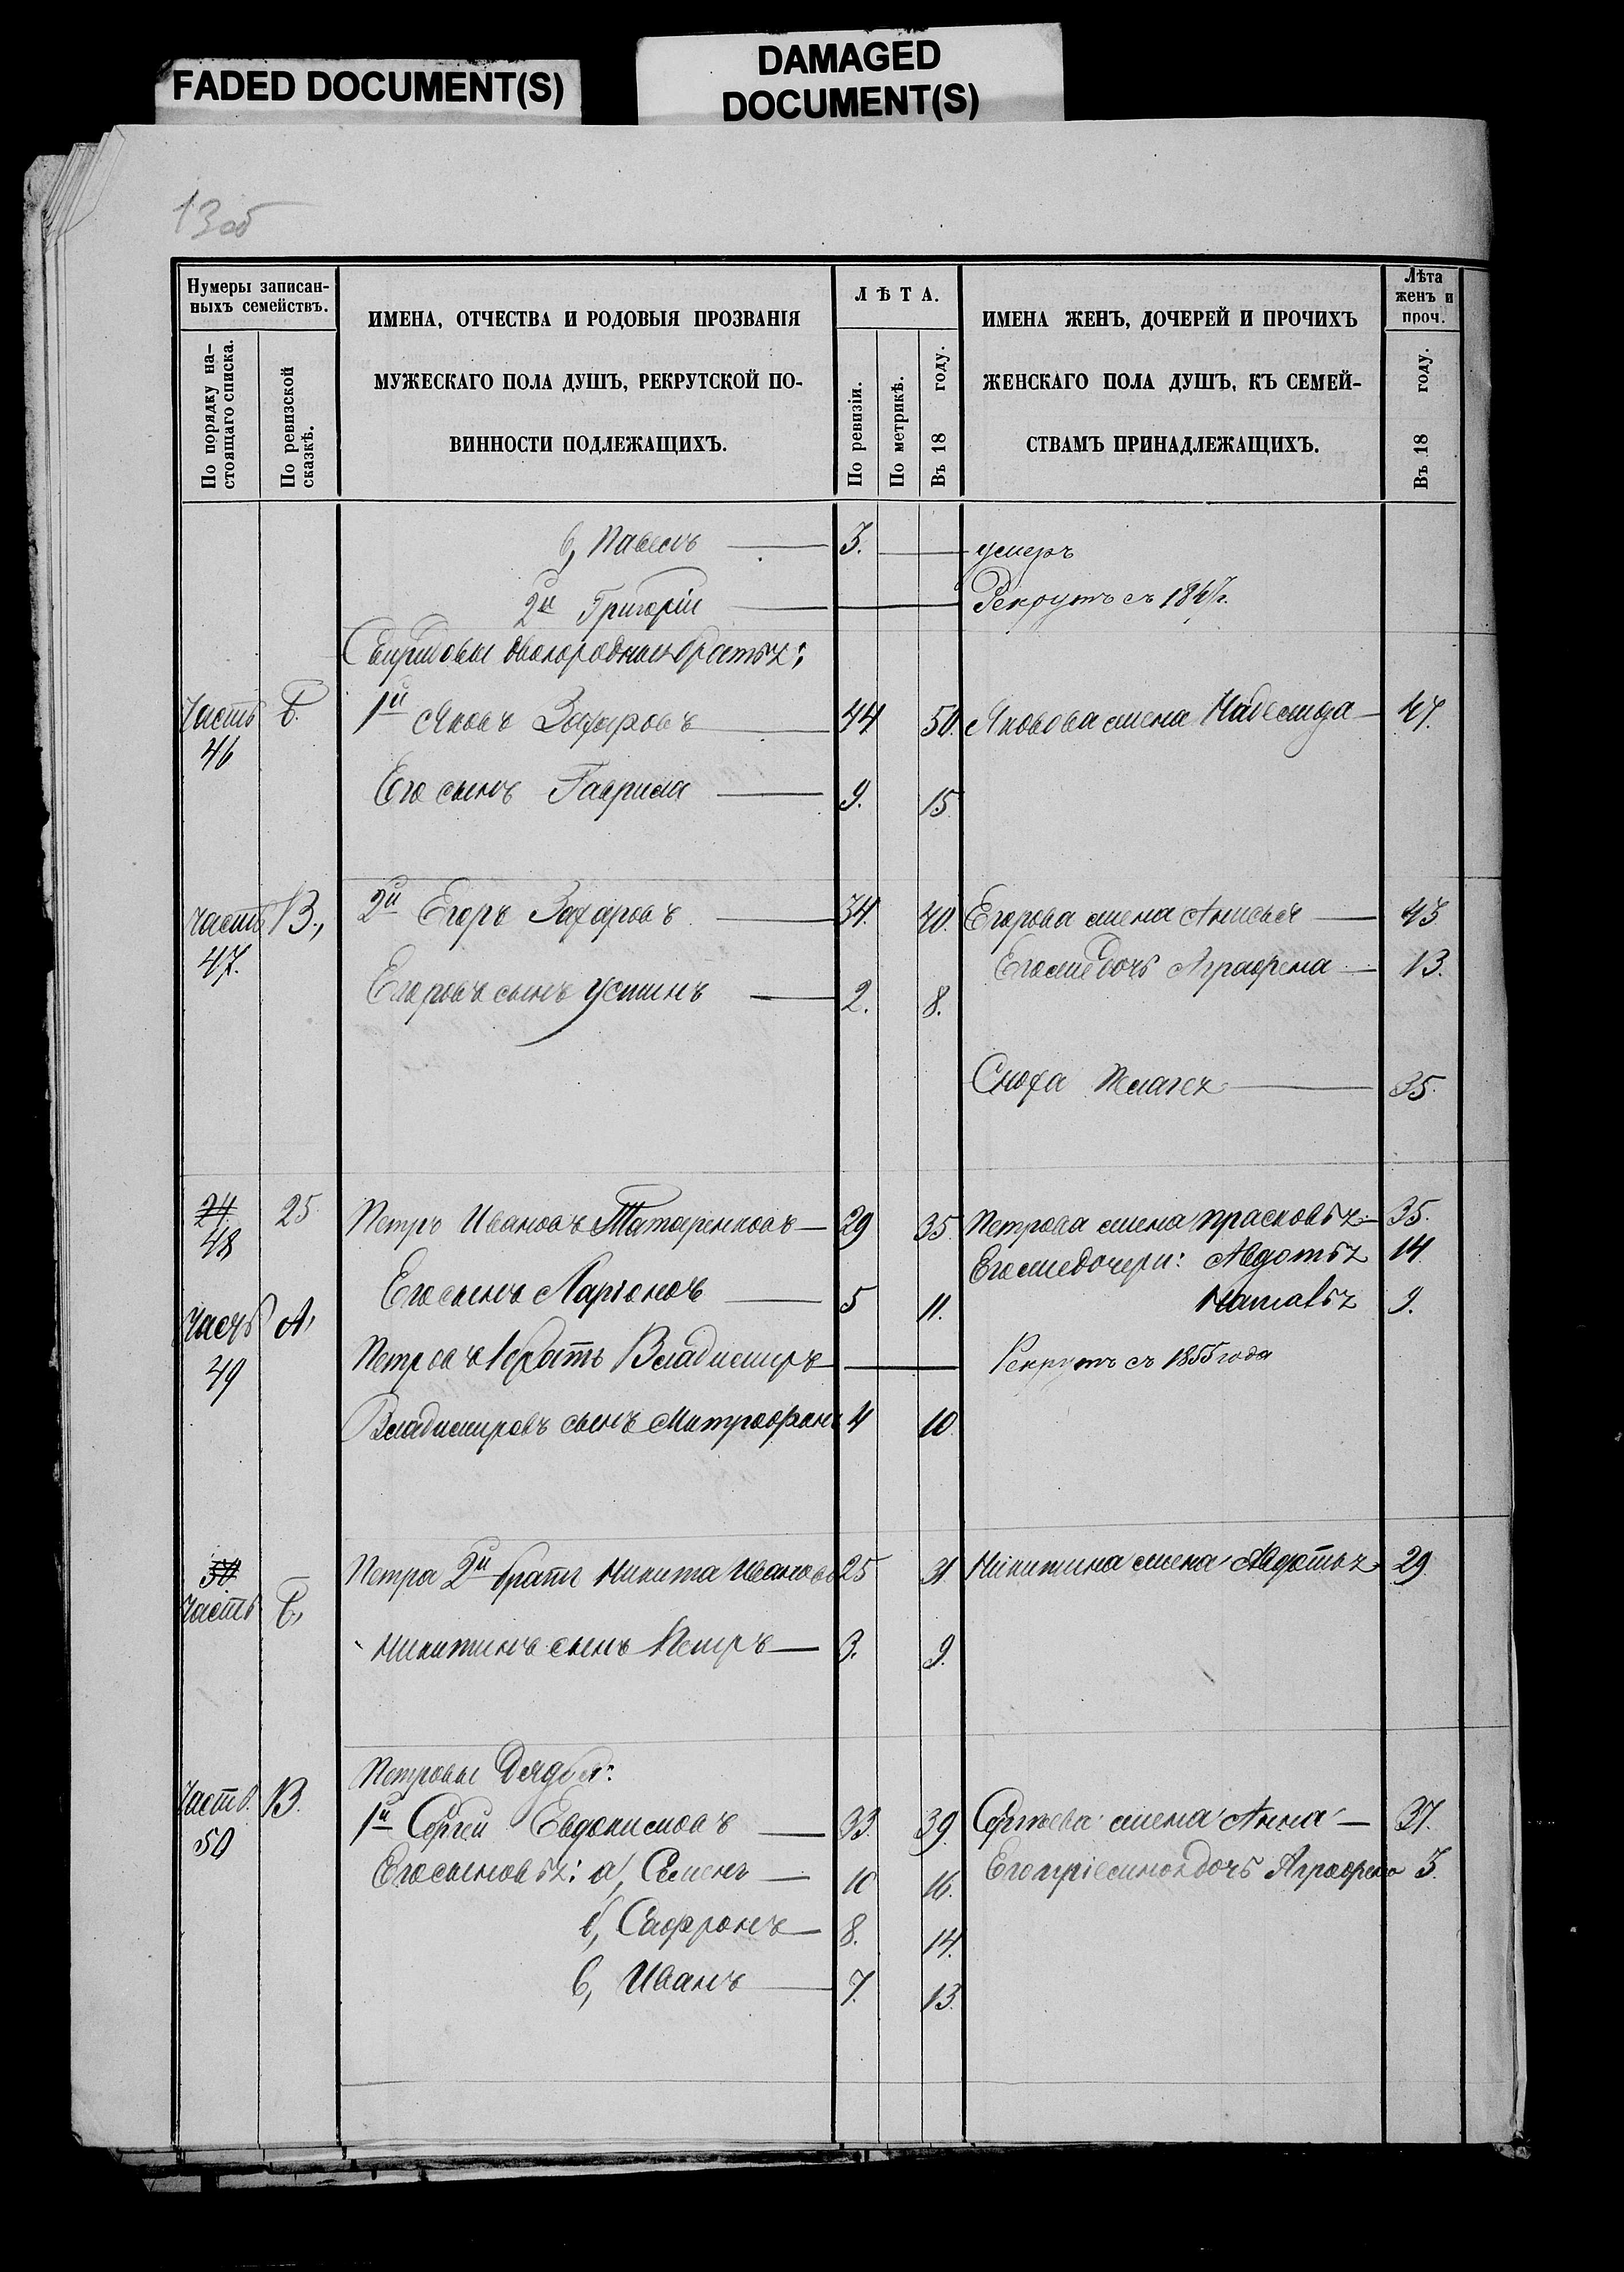 FADED DOCUMENT(S)
DAMAGED
DOCUMENT(S)
13об
Нумеры записан-
ныхъ семействъ.
По порядку на-
стоящаго списка.
По ревизской
сказкѣ.
ИМЕНА, ОТЧЕСТВА И РОДОВЫЯ ПРОЗВАНІЯ
МУЖЕСКАГО ПОЛА ДУШЪ, РЕКРУТСКОЙ ПО-
ВИННОСТИ ПОДЛЕЖАЩИХЪ.
ЛѢТА.
По ревизіи.
По метрикѣ.
Въ 18 году.
ИМЕНА ЖЕНЪ, ДОЧЕРЕЙ И ПРОЧИХЪ
ЖЕНСКАГО ПОЛА ДУШЪ, КЪ СЕМЕЙ-
СТВАМЪ ПРИНАДЛЕЖАЩИХЪ.
Лѣта
женъ и
проч.
Въ 18 году.
в, Павелъ — 3. — умеръ
2й Григорій — Рекрутъ съ
двоюродные братья:
Часть Б. 1й Яковъ Захаровъ — 44 50. Яковова жена Надежда — 47.
46
Его сынъ Гаврила — 9. 15
часть В., 2й Егоръ Захаровъ — 34. 40. Егорова жена Анисья — 43
47. Его же дочь Аграфена — 13.
Егоровъ сынъ Устинъ — 2. 8.
Сноха Пелагея — 35.
24 25 Петръ Ивановъ Татаренковъ — 29 35 Петрова жена Прасковья — 35.
48 Его же дочери: Авдотья 14
Его сынъ Ларіонъ — 5 11. Наталья 9.
Часть А,
49 Петровъ 1 братъ Владимиръ — Рекрутъ съ 1855 года
Владимировъ сынъ Митрофанъ 4 10
50 Петра 2й братъ Никита Ивановъ 25 31. Никитина жена Авдотья 29
Часть Б,
Никитинъ сынъ Петръ — 3. 9.
Петровые Дядья:
Часть В. 1й Сергей Евдокимовъ — 33. 39. Сергѣева жена Анна — 37.
50 Его сыновья: а, Семенъ — 10 16. Его дочь Аграфена 3.
б, Сафронъ — 8. 14.
в, Иванъ — 7. 13.